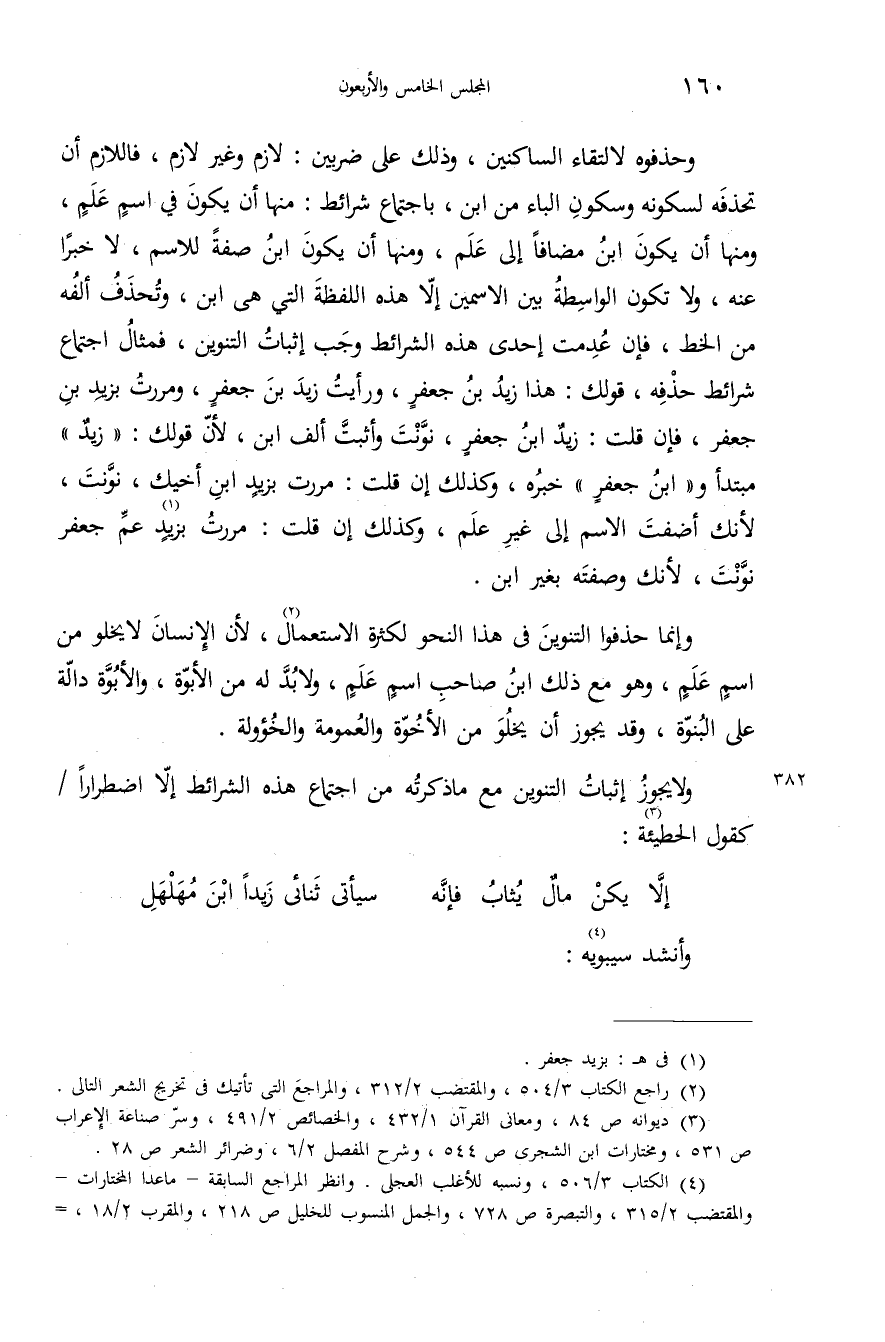 ١٦٠ المجلس الخامس والأربعون
وحذفوه لالتقاء الساكنين ، وذلك على ضربين : لازم وغير لازم ، فاللازم أن
تحذفَه لسكونه وسكونِ الباء من ابن ، باجتماع شرائط : منها أن يكونَ في اسمٍ عَلَمٍ ،
ومنها أن يكونَ ابنُ مضافاً إلى عَلَم ، ومنها أن يكونَ ابنُ صفةً للاسم ، لا خبرًا
عنه ، ولا تكون الواسِطةُ بين الاسمين إلّا هذه اللفظةَ التي هى ابن ، وتُحذَفُ ألفُه
من الخط ، فإن عُدِمت إحدى هذه الشرائط وجَب إثباتُ التنوين ، فمثالُ اجتماع
شرائط حذْفِه ، قولك : هذا زيدُ بنُ جعفرٍ ، ورأيتُ زيدَ بنَ جعفرٍ ، ومررتُ بزيدِ بنِ
جعفر ، فإن قلت : زيدٌ ابنُ جعفرٍ ، نوَّنْتَ وأثبتَّ ألف ابن ، لأنّ قولك : « زيدٌ »
مبتدأ و« ابنُ جعفرٍ » خبرُه ، وكذلك إن قلت : مررت بزيدٍ ابنِ أخيك ، نوَّنتَ ،
لأنك أضفتَ الاسم إلى غيرِ علَم ، وكذلك إن قلت : مررتُ بزيدٍ(١) عمِّ جعفر
نوَّنْتَ ، لأنك وصفتَه بغير ابن .
وإنما حذفوا التنوينَ فى هذا النحو لكثرة الاستعمال(٢) ، لأن الإِنسانَ لايخلو من
اسمٍ عَلَمٍ ، وهو مع ذلك ابنُ صاحبِ اسمٍ عَلَمٍ ، ولابُدَّ له من الأبوّة ، والأبُوَّة دالّة
على البُنوّة ، وقد يجوز أن يخلُوَ من الأخُوّة والعُمومة والخُؤولة .
٣٨٢ ولايجوزُ إثباتُ التنوين مع ماذكرتُه من اجتماع هذه الشرائط إلّا اضطراراً /
كقول الحطيئة(٣) :
إلَّا يكنْ مالٌ يُثابُ فإنَّه سيأتى ثَنائى زَيداً ابْنَ مُهَلْهَلِ
وأنشد سيبويه(٤) :
(١) فى هـ : بزيد جعفر .
(٢) راجع الكتاب ٥٠٤/٣ ، والمقتضب ٣١٢/٢ ، والمراجعَ التى تأتيك فى تخريج الشعر التالى .
(٣) ديوانه ص ٨٤ ، ومعانى القرآن ٤٣٢/١ ، والخصائص ٤٩١/٢ ، وسرّ صناعة الإعراب
ص ٥٣١ ، ومختارات ابن الشجرى ص ٥٤٤ ، وشرح المفصل ٦/٢ ، وضرائر الشعر ص ٢٨ .
(٤) الكتاب ٥٠٦/٣ ، ونسبه للأغلب العجلى . وانظر المراجع السابقة – ماعدا المختارات –
والمقتضب ٣١٥/٢ ، والتبصرة ص ٧٢٨ ، والجمل المنسوب للخليل ص ٢١٨ ، والمقرب ١٨/٢ ، =